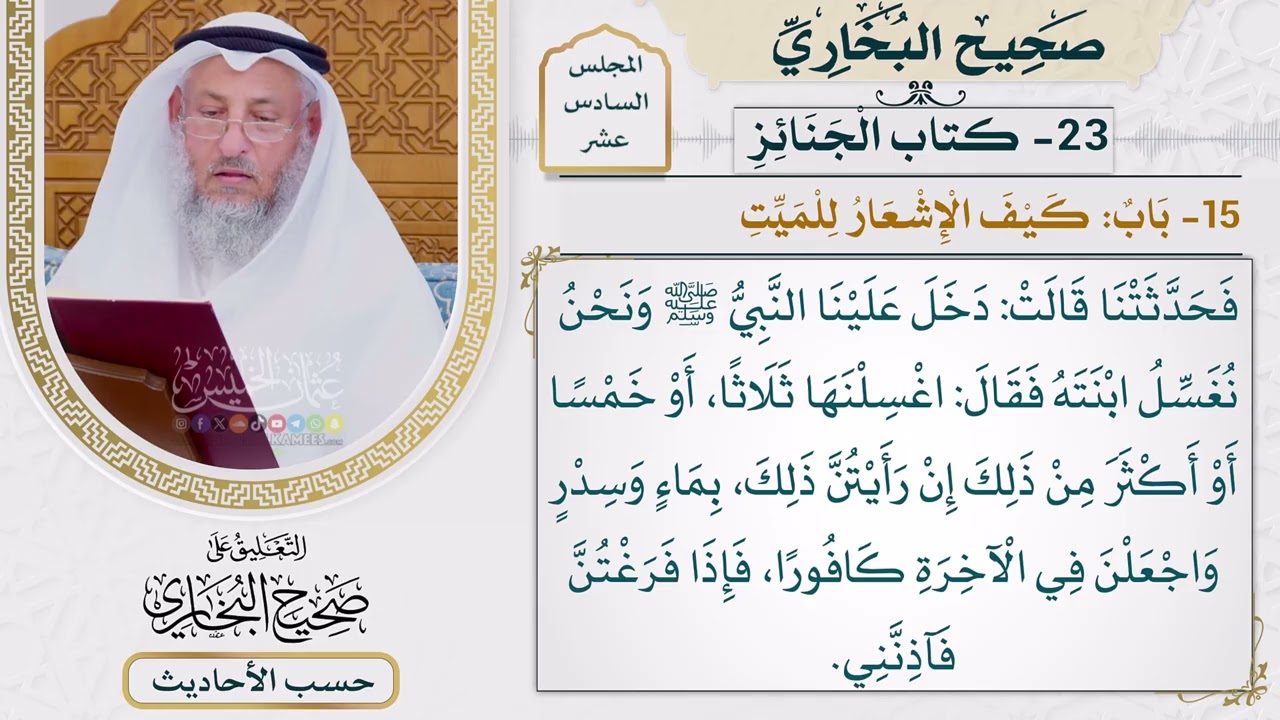 صَحِيح البُخَارِيِّ
المجلس
السادس
عشر
23- كتاب الْجَنَائِزِ
15- بَابٌ: كَيْفَ الْإِشْعَارُ لِلْمَيِّتِ
فَحَدَّثَتْنَا قَالَتْ: دَخَلَ عَلَيْنَا النَّبِيُّ ﷺ وَنَحْنُ
نُغَسِّلُ ابْنَتَهُ فَقَالَ: اغْسِلْنَهَا ثَلَاثًا، أَوْ خَمْسًا
أَوْ أَكْثَرَ مِنْ ذَلِكَ إِنْ رَأَيْتُنَّ ذَلِكَ، بِمَاءٍ وَسِدْرٍ
وَاجْعَلْنَ فِي الْآخِرَةِ كَافُورًا، فَإِذَا فَرَغْتُنَّ
فَآذِنَّنِي.
عثمان الخميس
KAMEES.com
التَّعَلِيقُ عَلَى
صَحِيحُ البُخَارِي
حسب الأحاديث